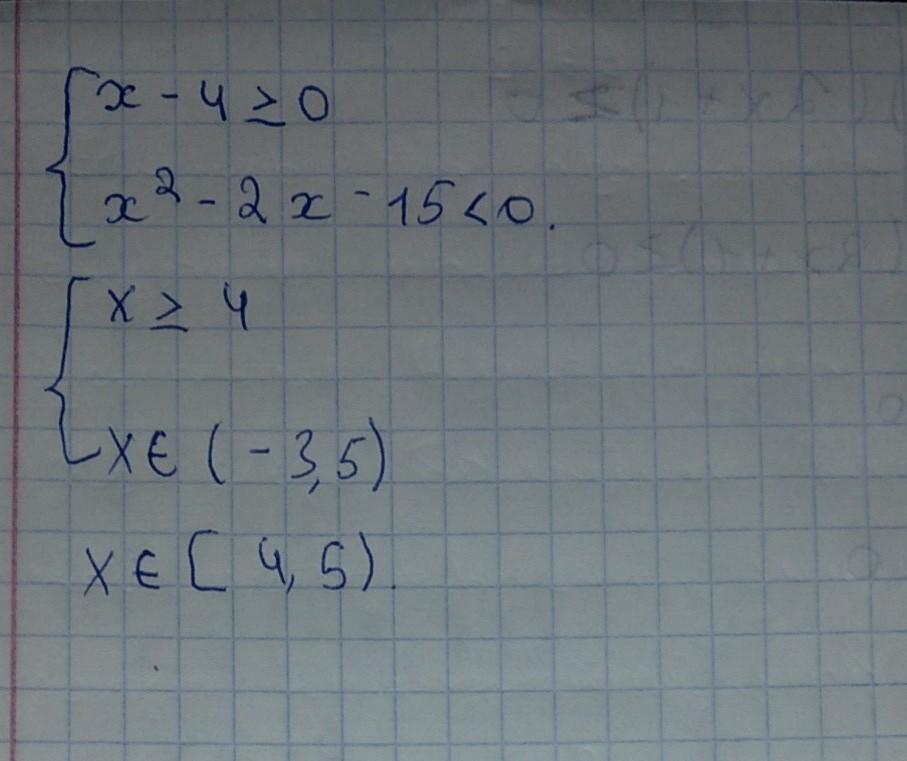 x - 4 ≥ 0
x² - 2x - 15 < 0.
x ≥ 4
x ∈ (-3, 5)
x ∈ [4, 5).